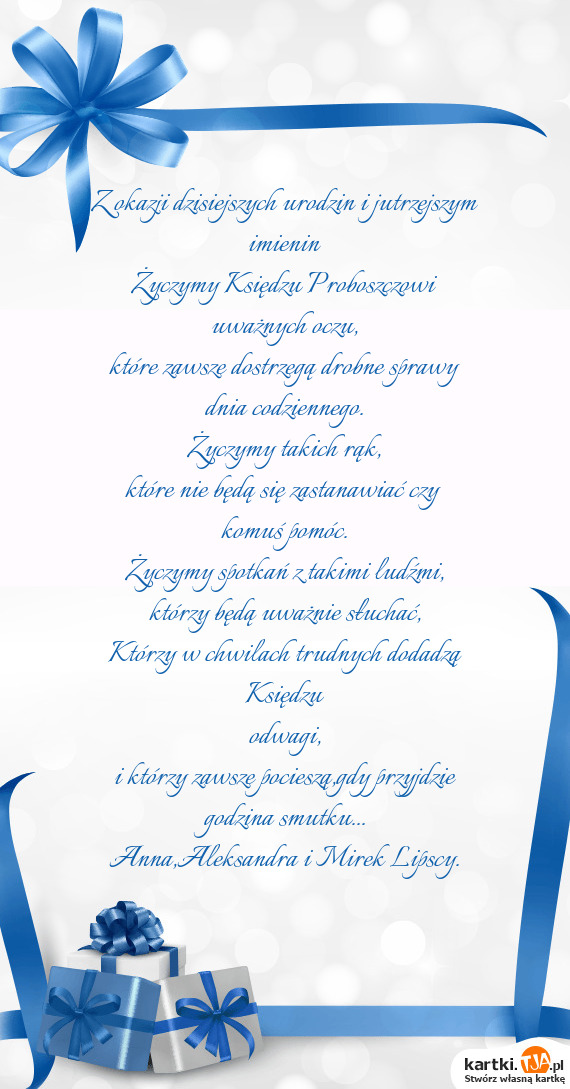 Z okazji dzisiejszych urodzin i jutrzejszym
imienin
Życzymy Księdzu Proboszczowi
uważnych oczu,
które zawsze dostrzegą drobne sprawy
dnia codziennego.
Życzymy takich rąk,
które nie będą się zastanawiać czy
komuś pomóc.
Życzymy spotkań z takimi ludźmi,
którzy będą uważnie słuchać,
Którzy w chwilach trudnych dodadzą
Księdzu
odwagi,
i którzy zawsze pocieszą,gdy przyjdzie
godzina smutku...
Anna,Aleksandra i Mirek Lipscy.
kartki.TJA.pl
Stwórz własną kartkę